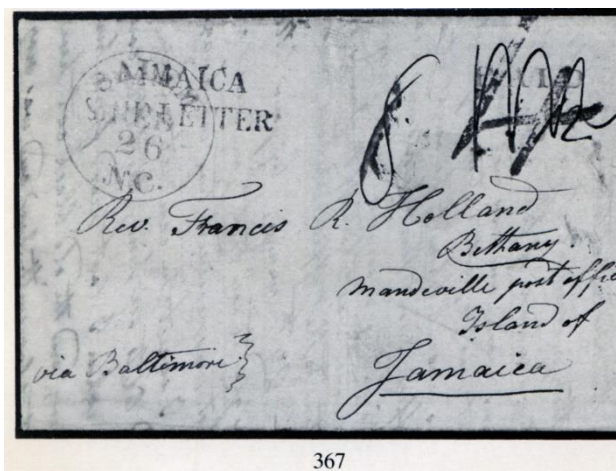 JAMAICA
SHIP LETTER
26
N.C.
PAID
Rev. Francis R. Holland
Bethany.
Mandeville post office
Island of
Jamaica
via Baltimore
367